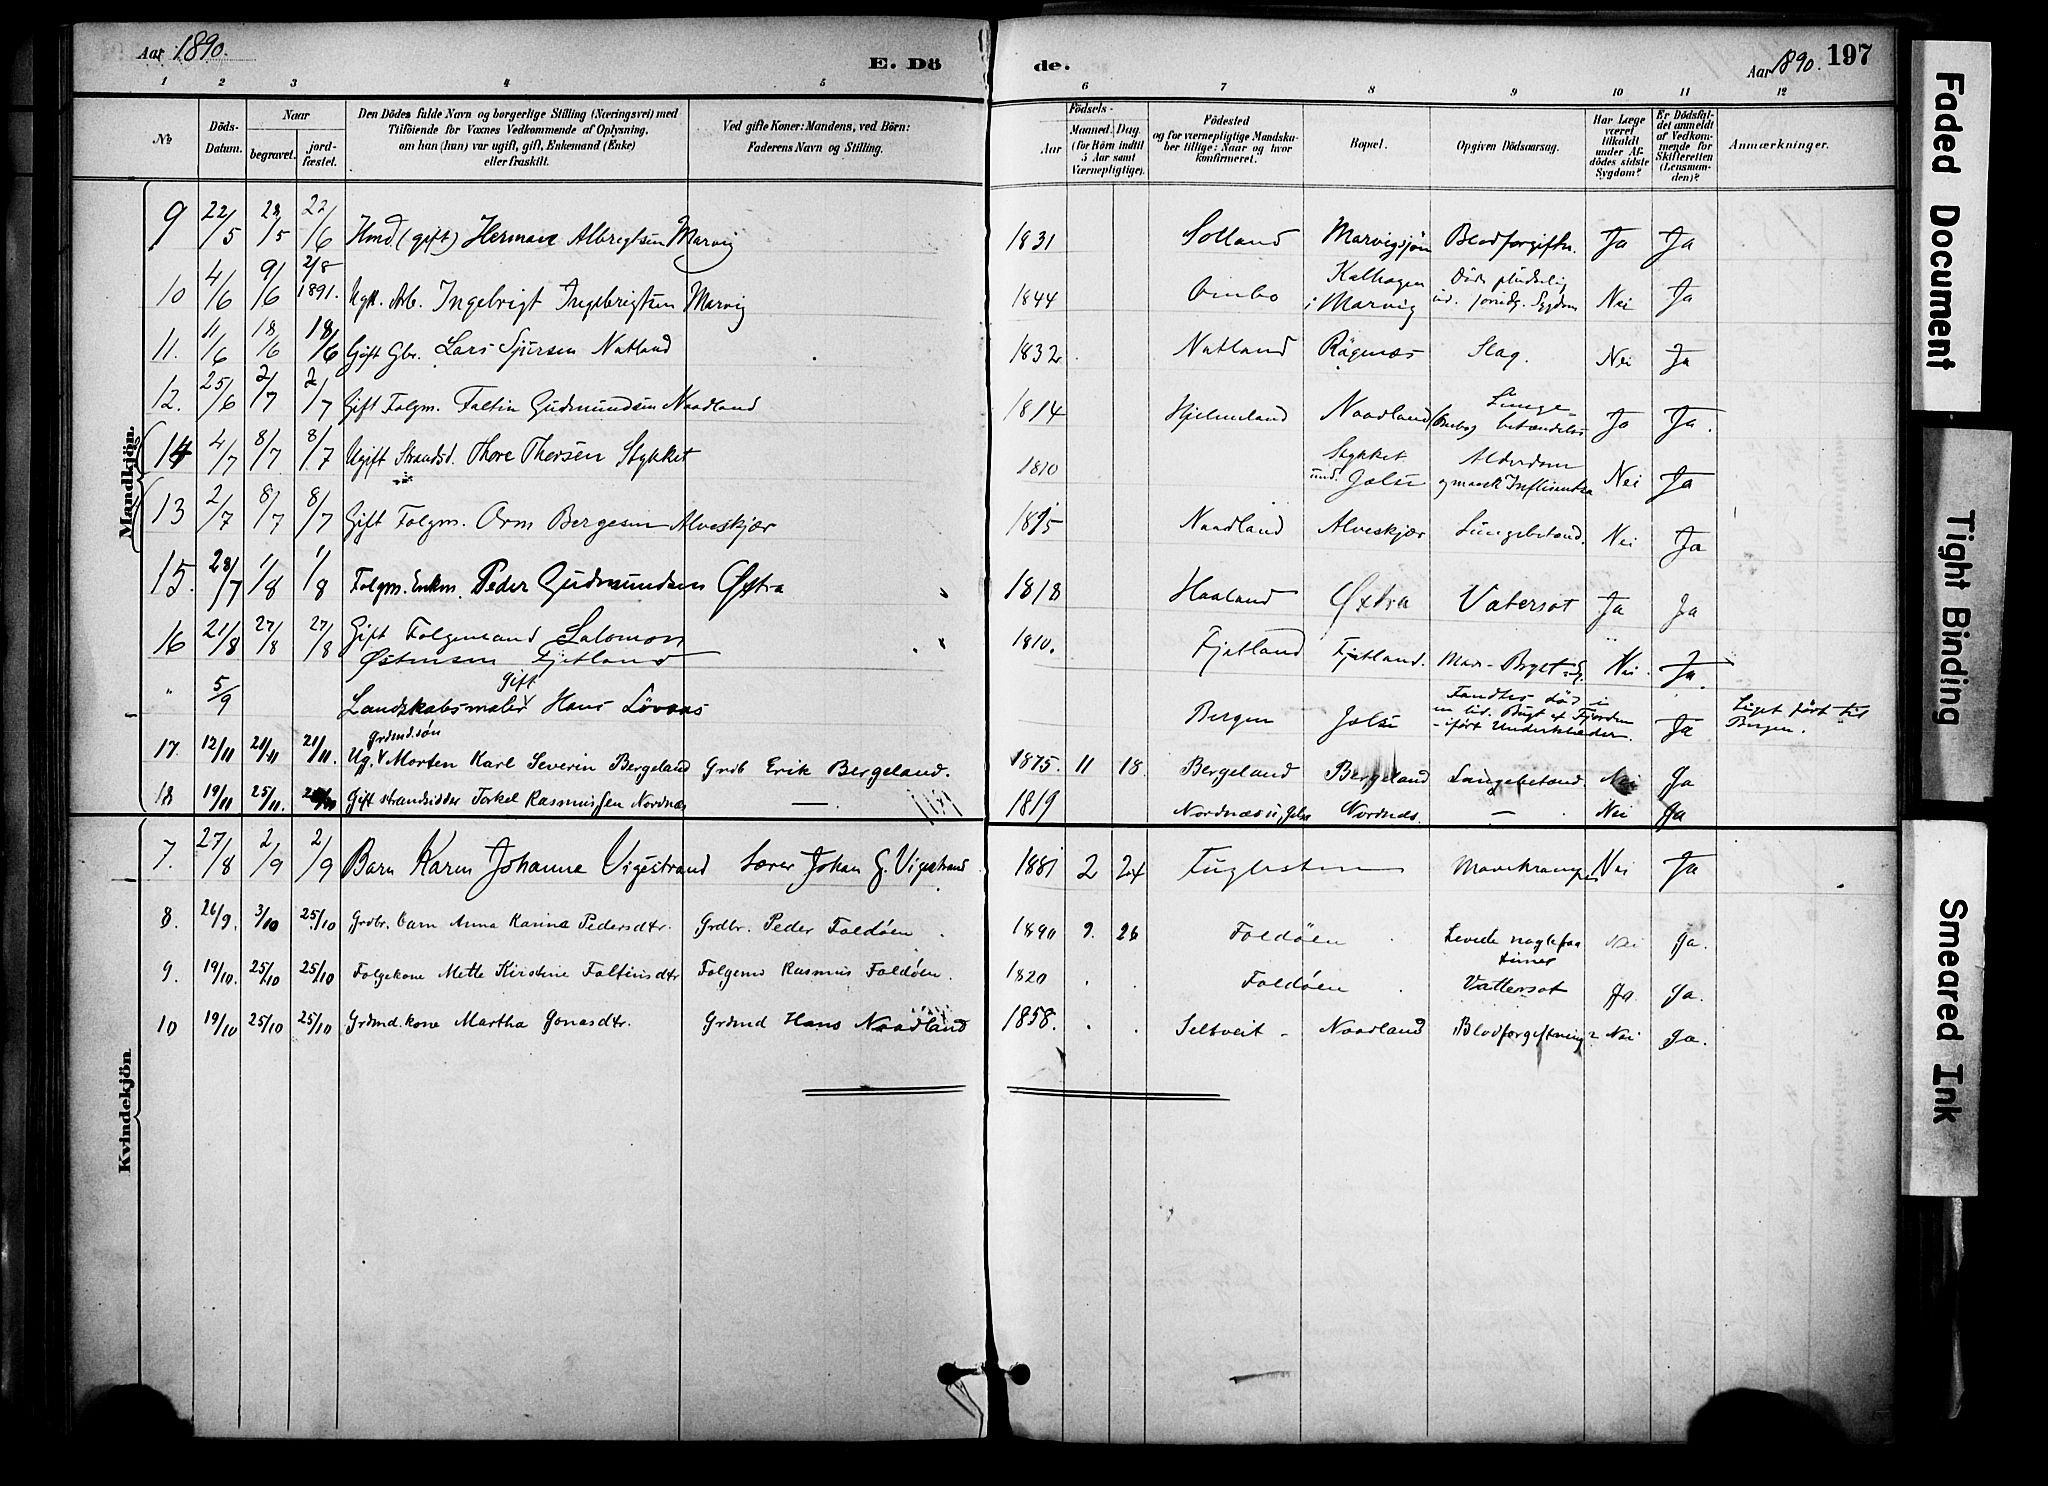 Aar 1890. E. Dö de. Aar 1890. 197
1 2 3 4 5 6 7 8 9 10 11 12
No
Döds-Datum.
Naar
begravet.
jord-fæstet.
Den Dödes fulde Navn og borgerlige Stilling (Næringsvei) med
Tilföiende for Voxnes Vedkommende af Oplysning,
om han (hun) var ugift, gift, Enkemand (Enke)
eller fraskilt.
Ved gifte Koner: Mandens, ved Börn:
Faderens Navn og Stilling.
Födsels-
Aar
Maaned. Dag
(for Börn indtil
5 Aar samt
Værnepligtige).
Födested
og for værnepligtige Mandska-
ber tillige: Naar og hvor
konfirmeret.
Bopæl.
Opgiven Dödsaarsag.
Har Læge
været
tilkaldt
under Af-
dödes sidste
Sygdom?
Er Dödsfal-
det anmeldt
af Vedkom-
mende for
Skifteretten
(Lensman-
den)?
Anmærkninger.
Mandkjön.
9 22/5 28/5 22/6 Hmd (gift) Herman Albregtsen Marvig 1831 Solland Marvigsjøen Blodforgiftn. Ja Ja
10 4/6 9/6 2/8 1891. Ugft. Arb. Ingebrigt Ingebrigtsen Marvig 1844 Ombo Kalhagen i Marvig Døde pludselig ud. foreudg. Sygdom Nei Ja
11. 11/6 18/6 18/6 Gift Gbr. Lars Sjursen Natland 1832 Natland Rägenæs Slag. Nei Ja
12. 25/6 2/7 2/7 Gift Folgm. Faltin Gudmundsen Naadland 1814 Hjelmeland Naadland (Ombo) Lunge-betændelse Ja Ja.
14 4/7 8/7 8/7 Ugift Strandsd. Thore Thorsen Stykket 1810 Stykket und. Jelse Alderdom og maask Influentsa Nei Ja
13 2/7 8/7 8/7 Gift Folgm. Orm Bergesen Alveskjær 1815 Naadland Alveskjær Lungebetænd. Nei Ja
15. 28/7 1/8 1/8 Folgm. Enkm. Peder Gudmundsen Øxtra 1818 Haaland Øxtra Vatersot Ja Ja
16 21/8 27/8 27/8 Gift Folgemand Salomon
Østensen Fjetland 1810. Fjetland Fjetland. Mave- Bryst - Nei Ja.
" 5/9 Landskabsmaler gift Hans Lövaas Bergen Jelse Fandtes död i en lid. Bugt af Fjorden - iført Underklæder. Ja Liget ført til Bergen.
17. 12/11 21/11 21/11. Ug. grdmd.søn Morten Karl Severin Bergeland Grdb Erik Bergeland. 1875. 11 18. Bergeland Bergeland Lungebetænd. Nei Ja
18 19/11 25/11. Gift strandsidder Torkel Rasmussen Nordnæs — 1819 Nordnæs u. Jelse Nordnæs. — Nei Ja
Kvindekjön
7. 27/8 2/9 2/9 Barn Karen Johanne Vigestrand Lærer Johan G. Vigestrand 1881 2 24 Fuglesteen Mavekrampe Nei Ja
8. 26/9. 3/10 25/10 Grdbr. barn Anna Karina Pedersdtr. Grdbr. Peder Foldöen 1890 9. 26 Foldöen Levede nogle faa timer Nei Ja.
9. 19/10. 25/10 25/10 Folgekone Mette Kirstine Faltinsdtr Folgemd Rasmus Foldöen. 1820 Foldöen Vattersot Ja. Ja.
10 19/10 25/10 25/10 Grdmd.kone Martha Jonasdtr. Grdmd Hans Naadland 1858. Seltveit - Naadland Blodforgiftning? Nei Ja.
Faded Document
Tight Binding
Smeared Ink